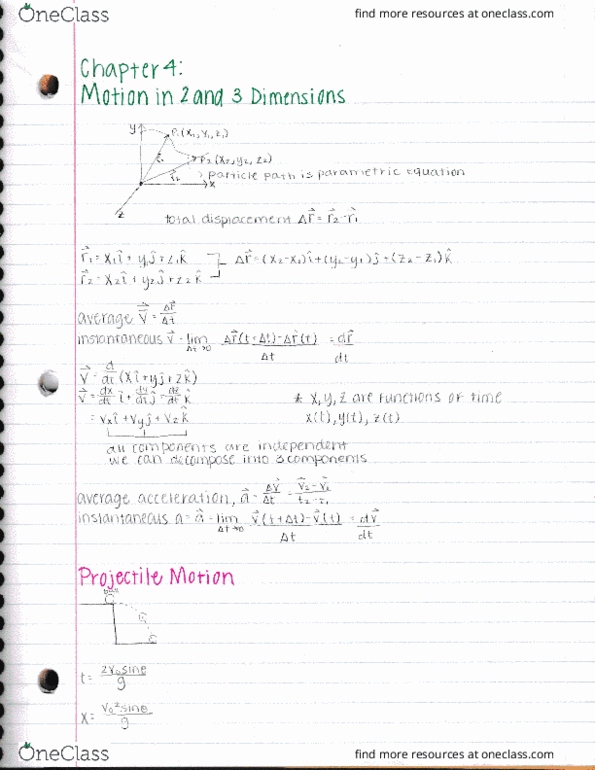 OneClass
find more resources at oneclass.com
Chapter 4:
Motion in 2 and 3 Dimensions
y P₁(x₁, y₁, z₁)
P₂(x₂, y₂, z₂)
x
z
particle path is parametric equation
total displacement Δr⃗ = r⃗₂ - r⃗₁
r⃗₁ = x₁î + y₁ĵ + z₁k̂
r⃗₂ = x₂î + y₂ĵ + z₂k̂
Δr⃗ = (x₂-x₁)î + (y₂-y₁)ĵ + (z₂-z₁)k̂
average v⃗ = Δr⃗/Δt
instantaneous v⃗ = lim Δt→0 Δr⃗(t+Δt)-Δr⃗(t)/Δt = dr⃗/dt
v⃗ = d/dt (xî + yĵ + zk̂)
v⃗ = dx/dt î + dy/dt ĵ + dz/dt k̂
* x, y, z are functions of time
= vₓî + vᵧĵ + v_z k̂
x(t), y(t), z(t)
all components are independent
we can decompose into 3 components
average acceleration, a⃗ = Δv⃗/Δt
instantaneous a = a⃗ = lim Δt→0 v⃗(t+Δt)-v⃗(t)/Δt = dv⃗/dt
Projectile Motion
t = 2v₀sinθ/g
x = v₀²sinθ/g
OneClass
find more resources at oneclass.com